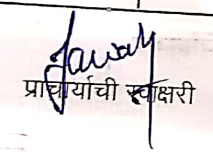 प्राचार्यांची स्वाक्षरी